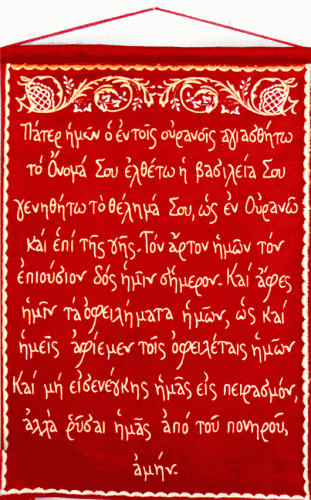 Πάτερ ἡμῶν ὁ ἐν τοῖς οὐρανοῖς ἁγιασθήτω
τὸ Ὄνομά Σου ἐλθέτω ἡ βασιλεία Σου
γενηθήτω τὸ θέλημά Σου, ὡς ἐν Οὐρανῷ
καί ἐπί τῆς γῆς. Τὸν ἄρτον ἡμῶν τόν
ἐπιούσιον δός ἡμῖν σήμερον. Καί ἄφες
ἡμῖν τά ὀφειλήματα ἡμῶν, ὡς καί
ἡμεῖς ἀφίεμεν τοῖς ὀφειλέταις ἡμῶν
Καί μή εἰσενέγκης ἡμᾶς εἰς πειρασμόν,
ἀλλά ῥῦσαι ἡμᾶς ἀπό τοῦ πονηροῦ,
ἀμήν.